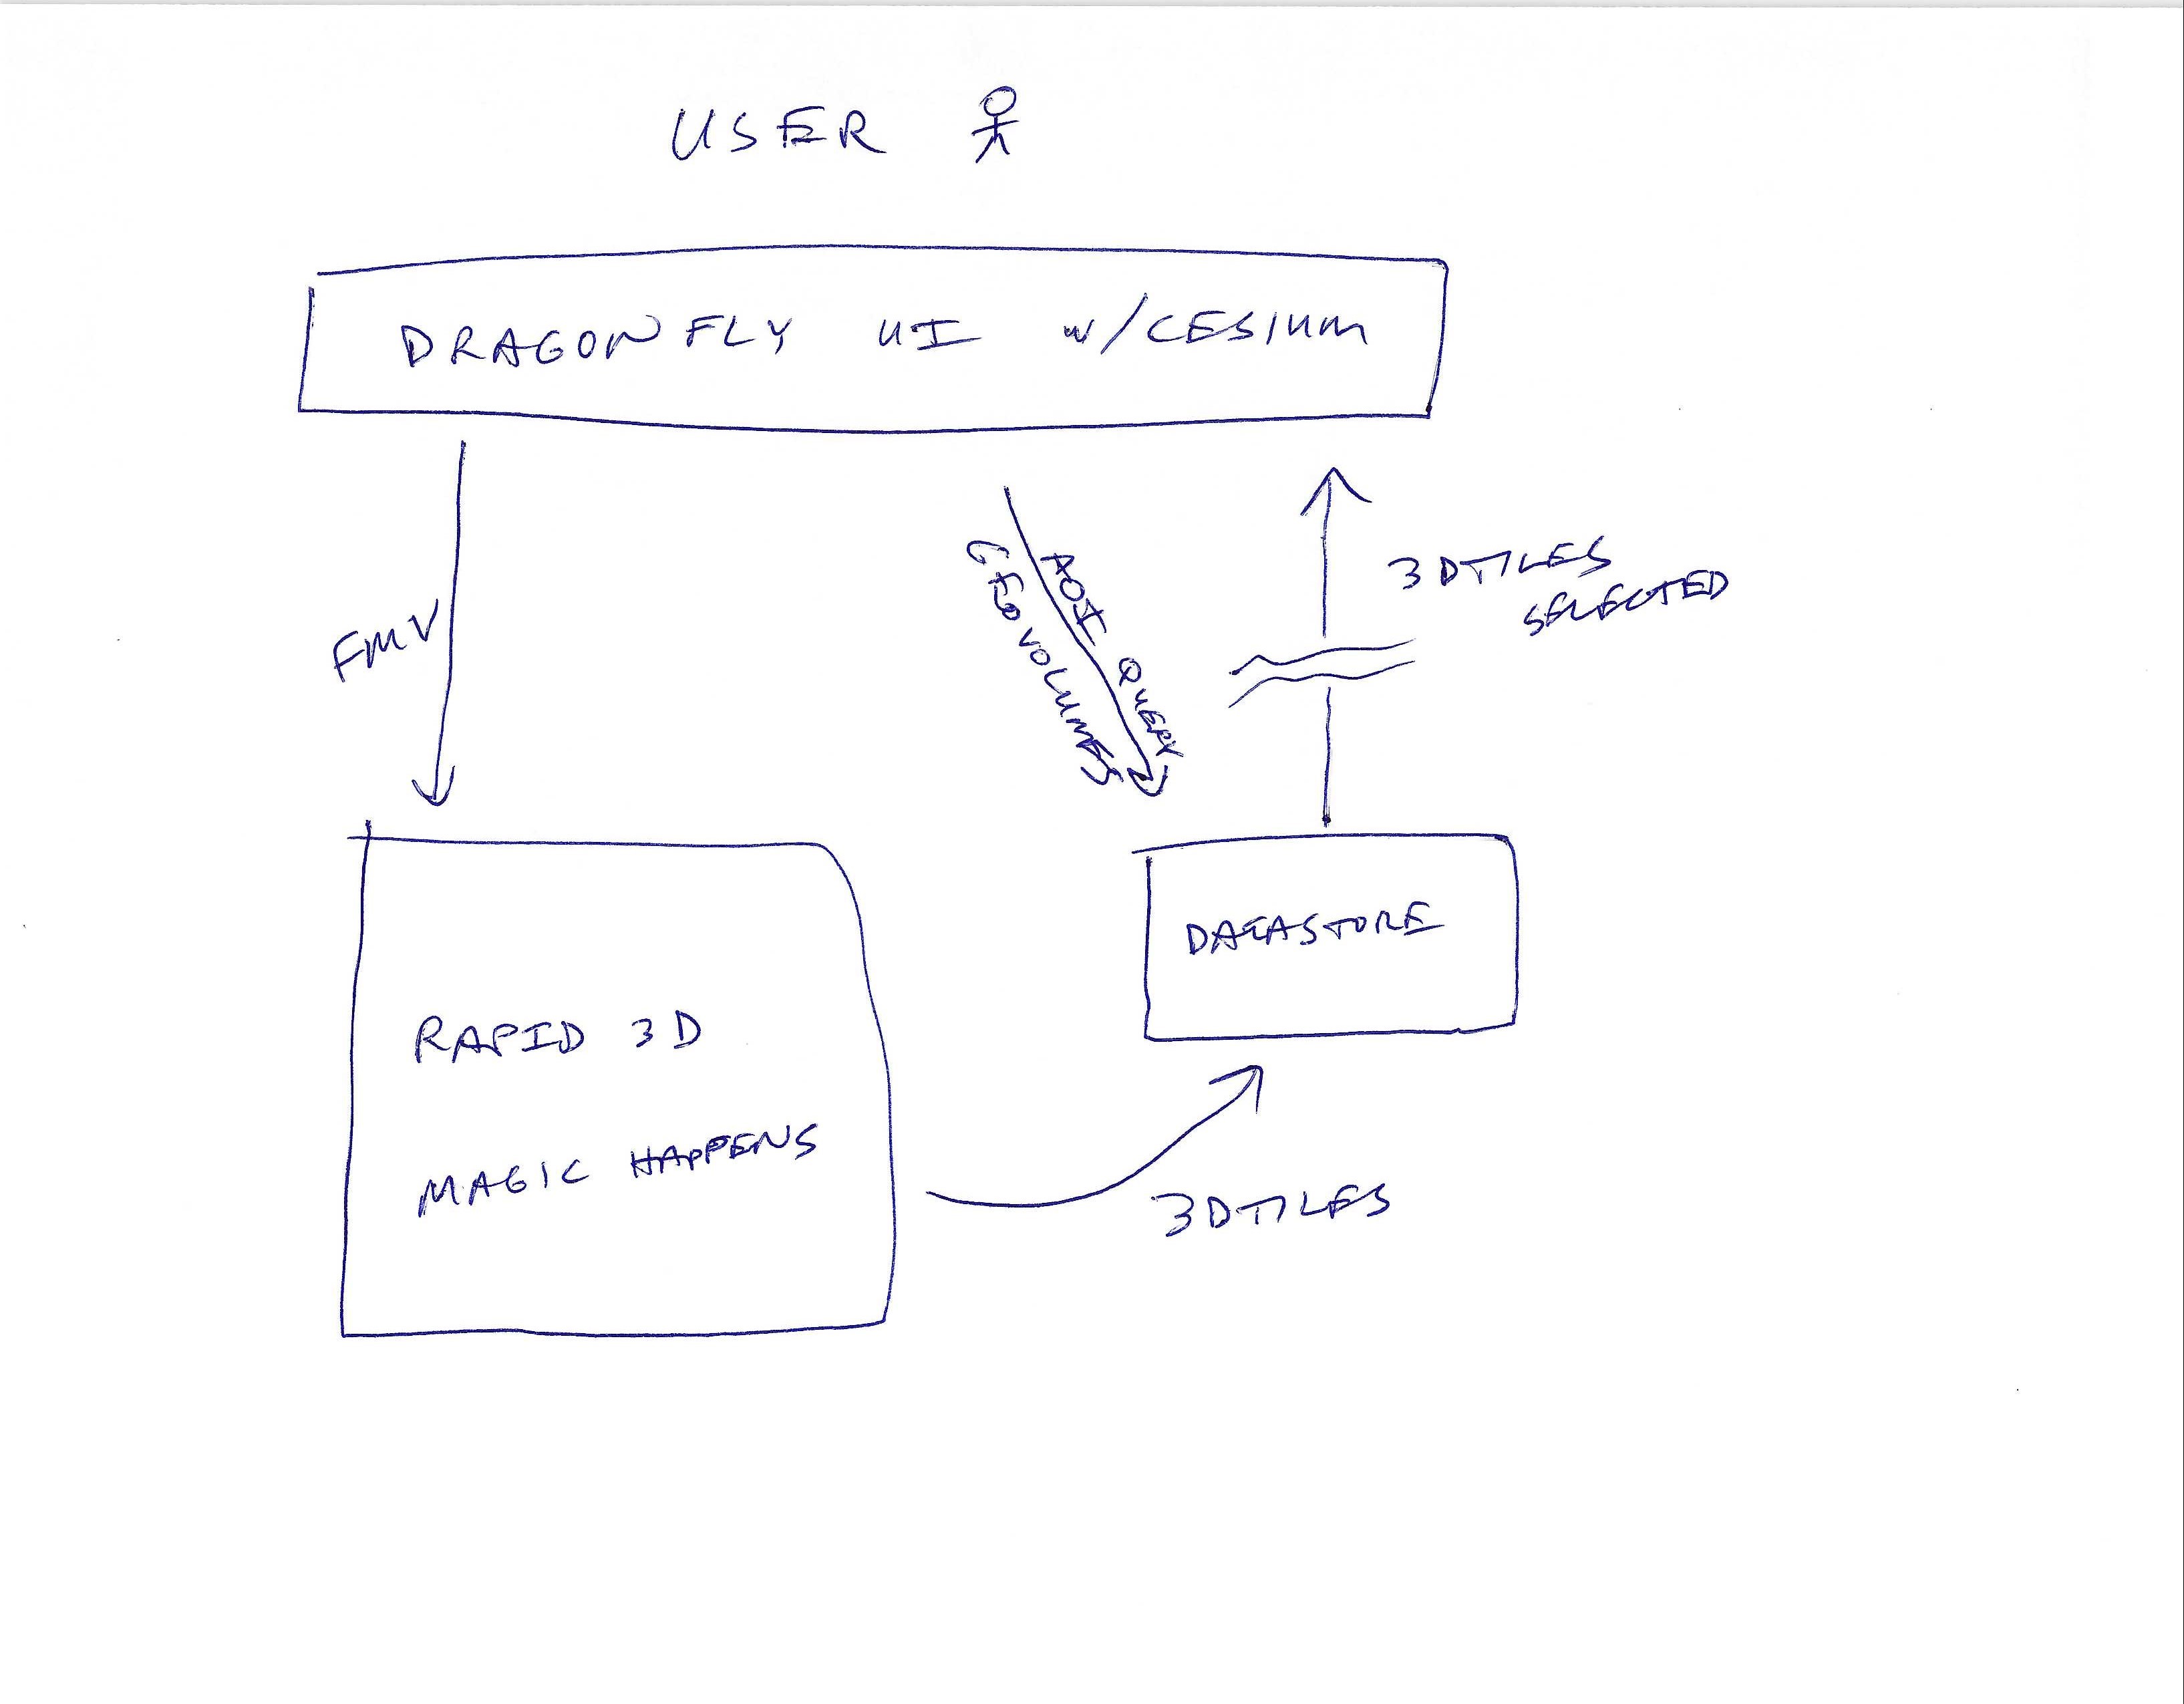 USER
DRAGONFLY UI w/CESIUM
FMV
AOI QUERY
GEOVOLUMES
3DTILES
SELECTED
DATASTORE
RAPID 3D
MAGIC HAPPENS
3DTILES